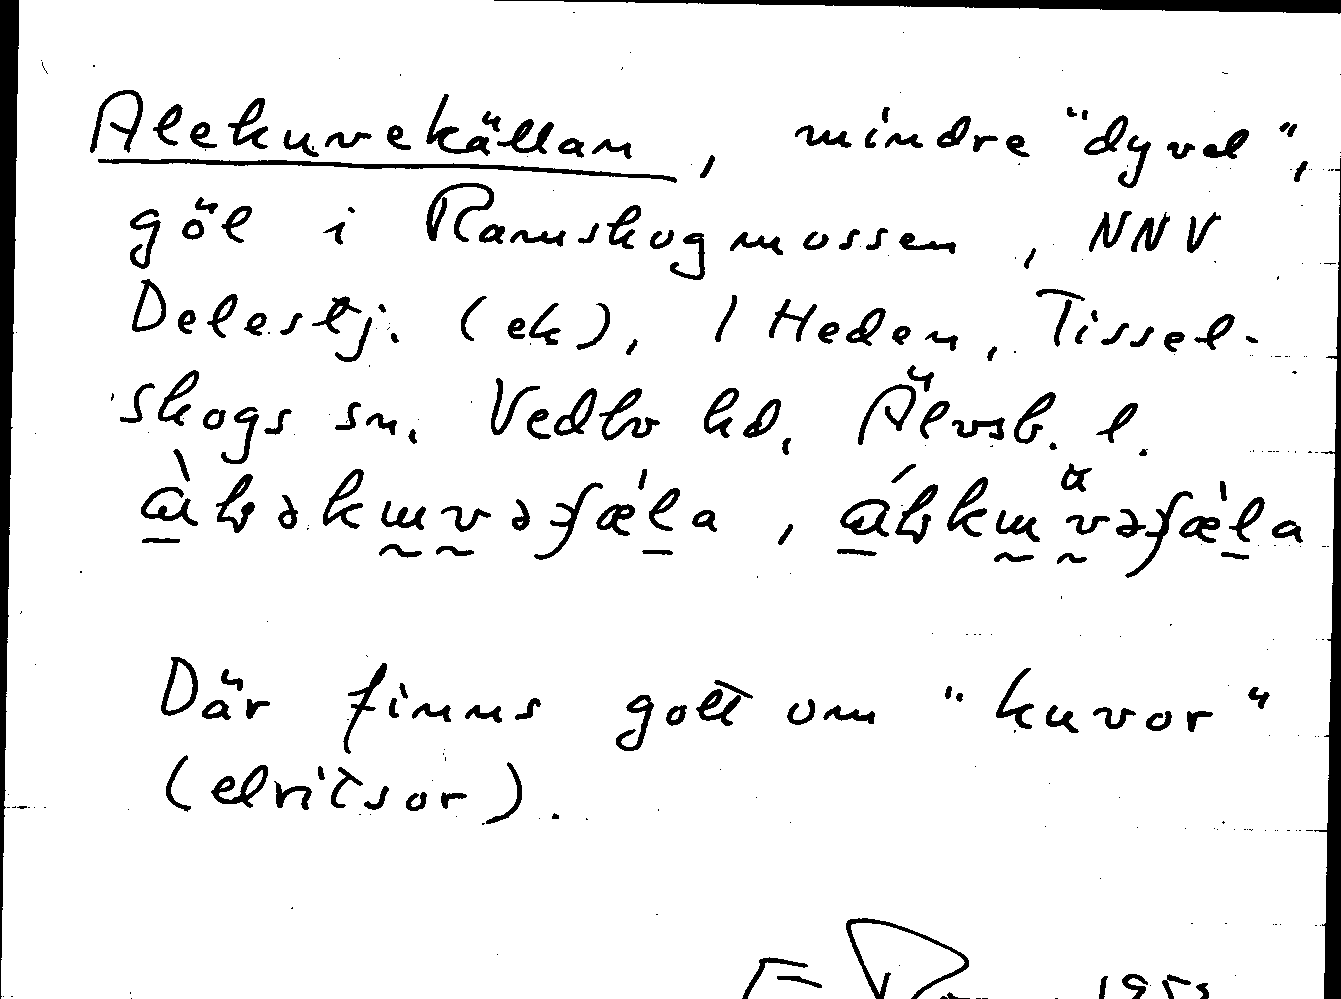 Alekuvekällan, mindre "dyvel",
göl i Ramskogmossen, NNV
Delestj. (ek), 1 Heden, Tissel-
skogs sn. Vedbo hd. Älvsb. l.
Där finns gott om "kuvor"
(elritsor).
1953